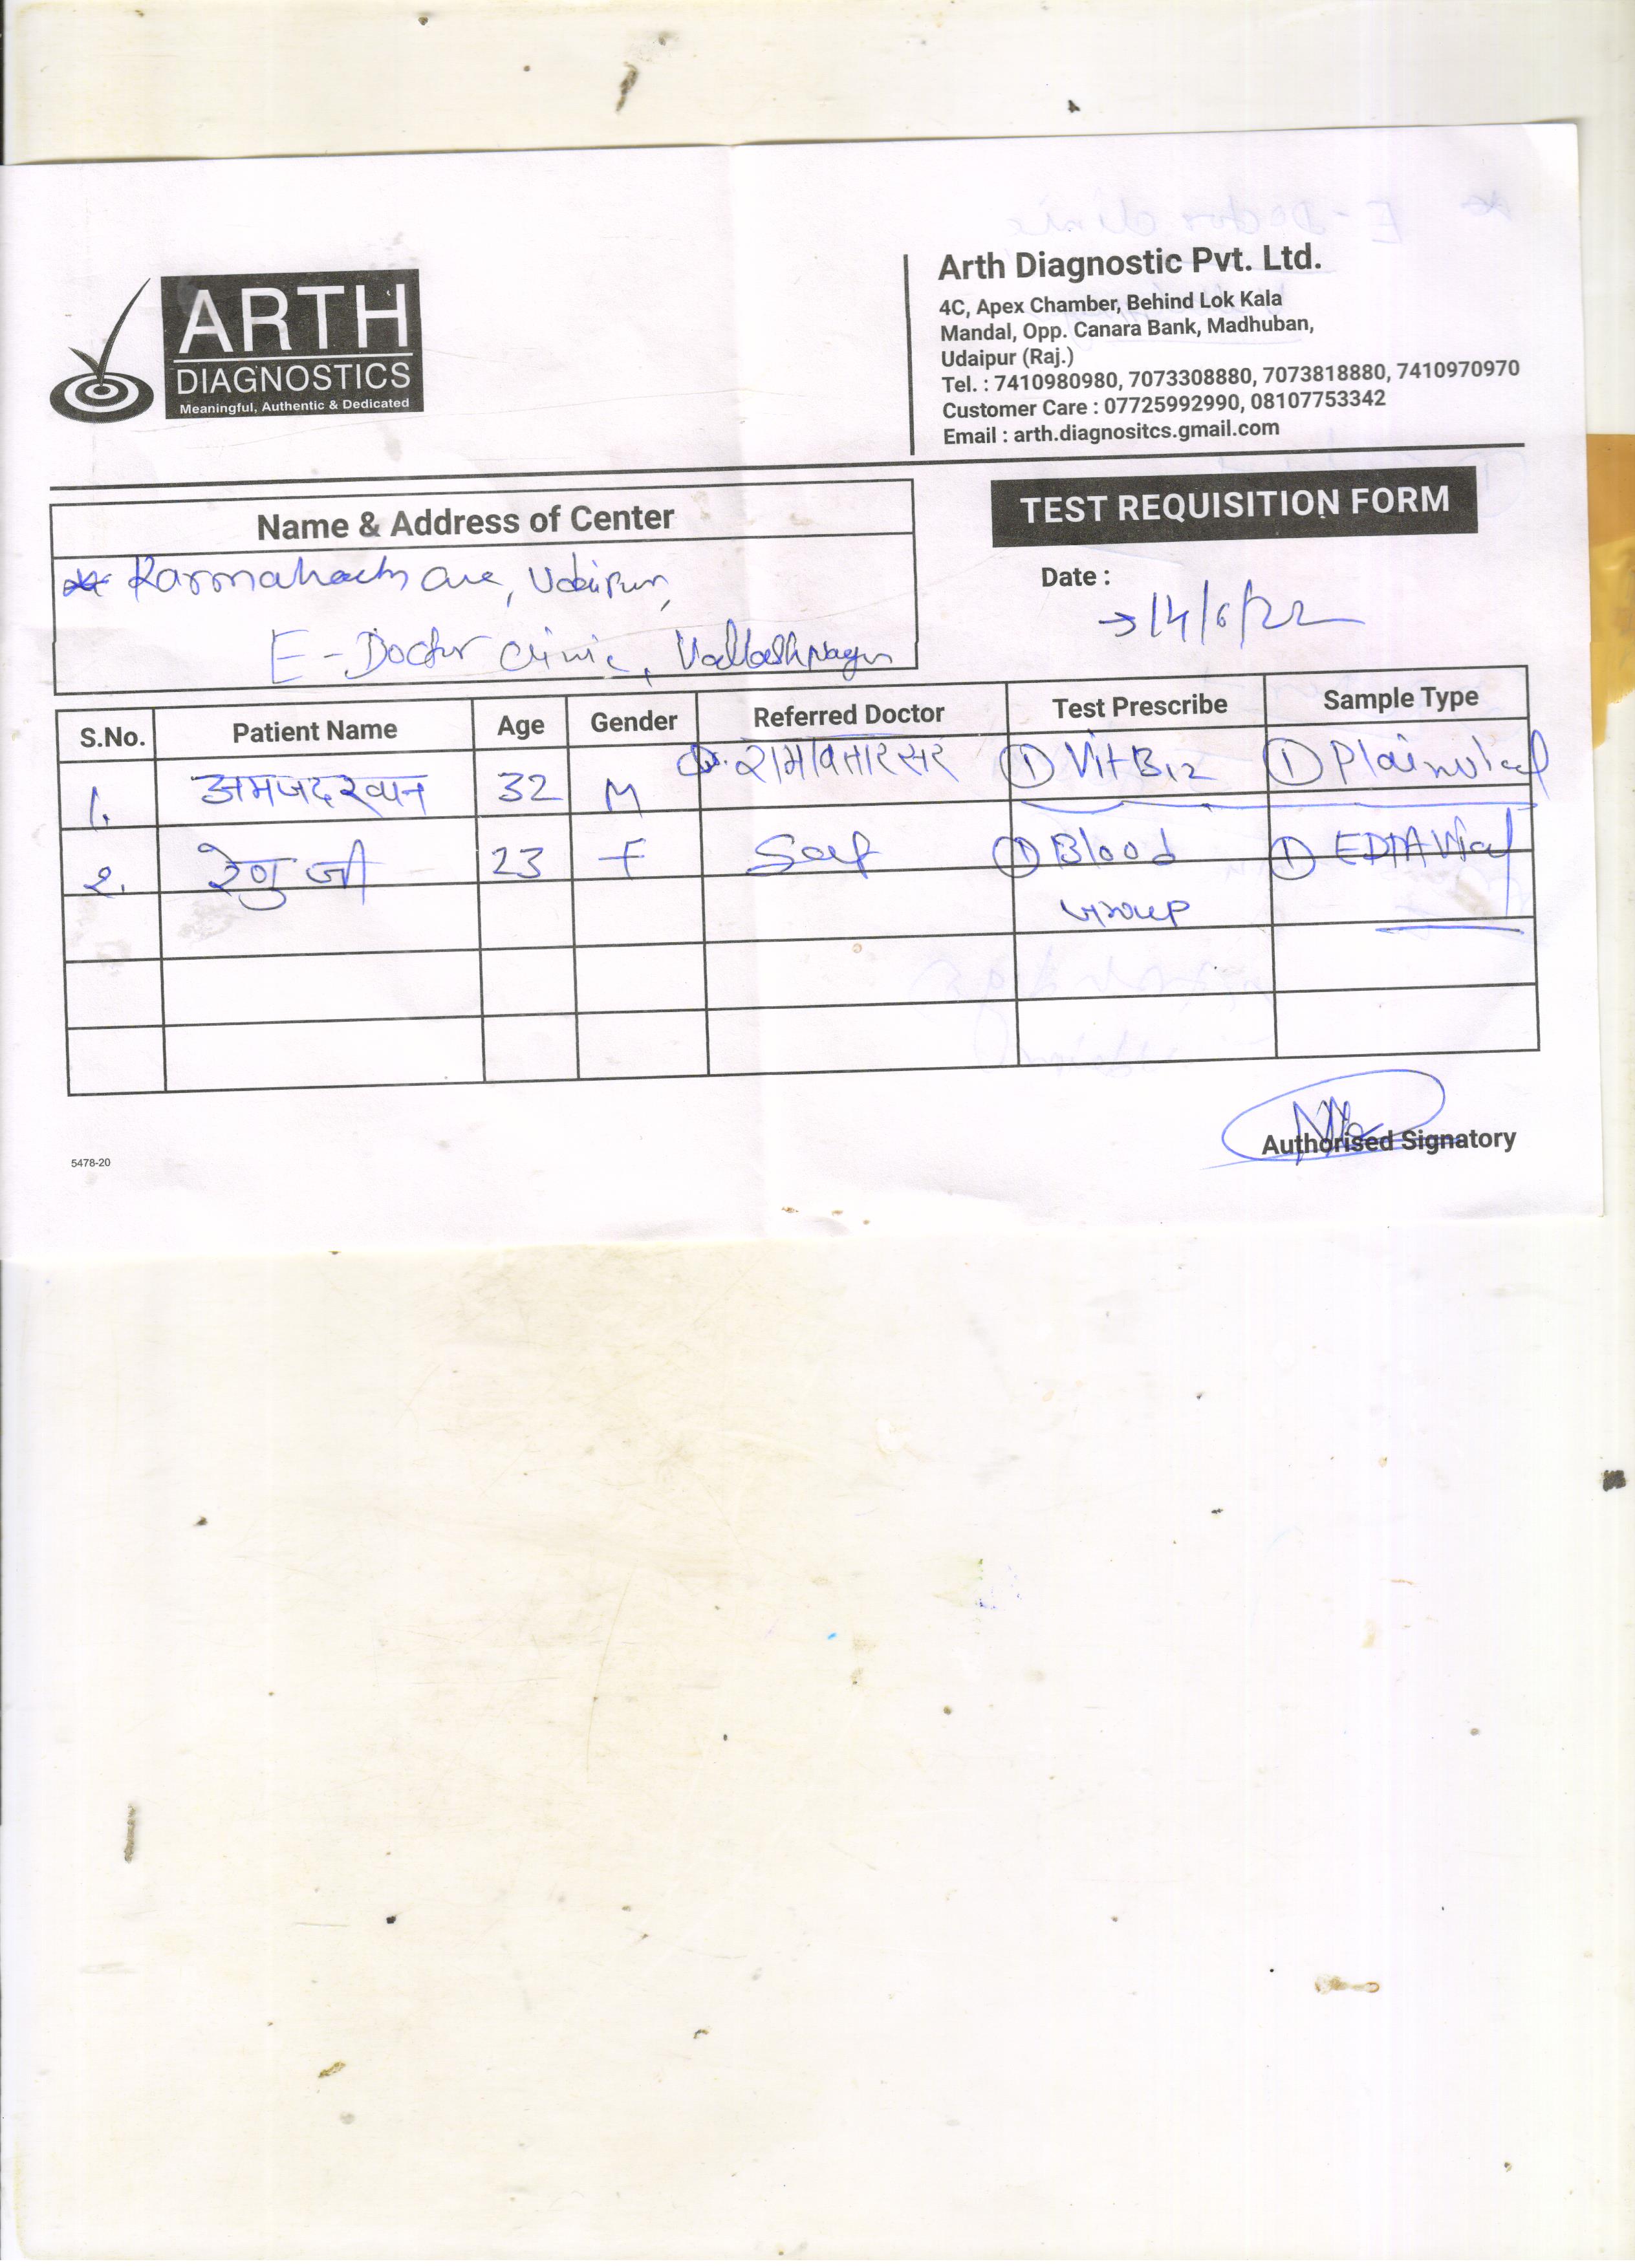 ARTH
DIAGNOSTICS
Meaningful, Authentic & Dedicated
Arth Diagnostic Pvt. Ltd.
4C, Apex Chamber, Behind Lok Kala
Mandal, Opp. Canara Bank, Madhuban,
Udaipur (Raj.)
Tel. : 7410980980, 7073308880, 7073818880, 7410970970
Customer Care : 07725992990, 08107753342
Email : arth.diagnositcs.gmail.com
Name & Address of Center
Udaipur,
E-Doctor clinic,
TEST REQUISITION FORM
Date :
→ 14/6/22
S.No. Patient Name Age Gender Referred Doctor Test Prescribe Sample Type
1. अमजद खान 32 M Dr. रामावतार सर ① Vit B12 ① Plain vial
2. रेणु जी 23 F Self ① Blood ① EDTA Vial
group
Authorised Signatory
5478-20